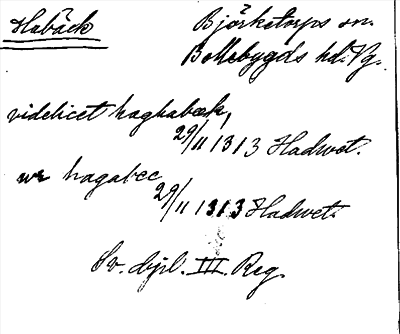 Habäck
Björketorps sn.
Bollebygds hd. Vg.
videlicet haghabæk,
29/11 1313 Hadwet.
hagabec
29/11 1313 Hadwet.
Sv. dipl. III. Reg.